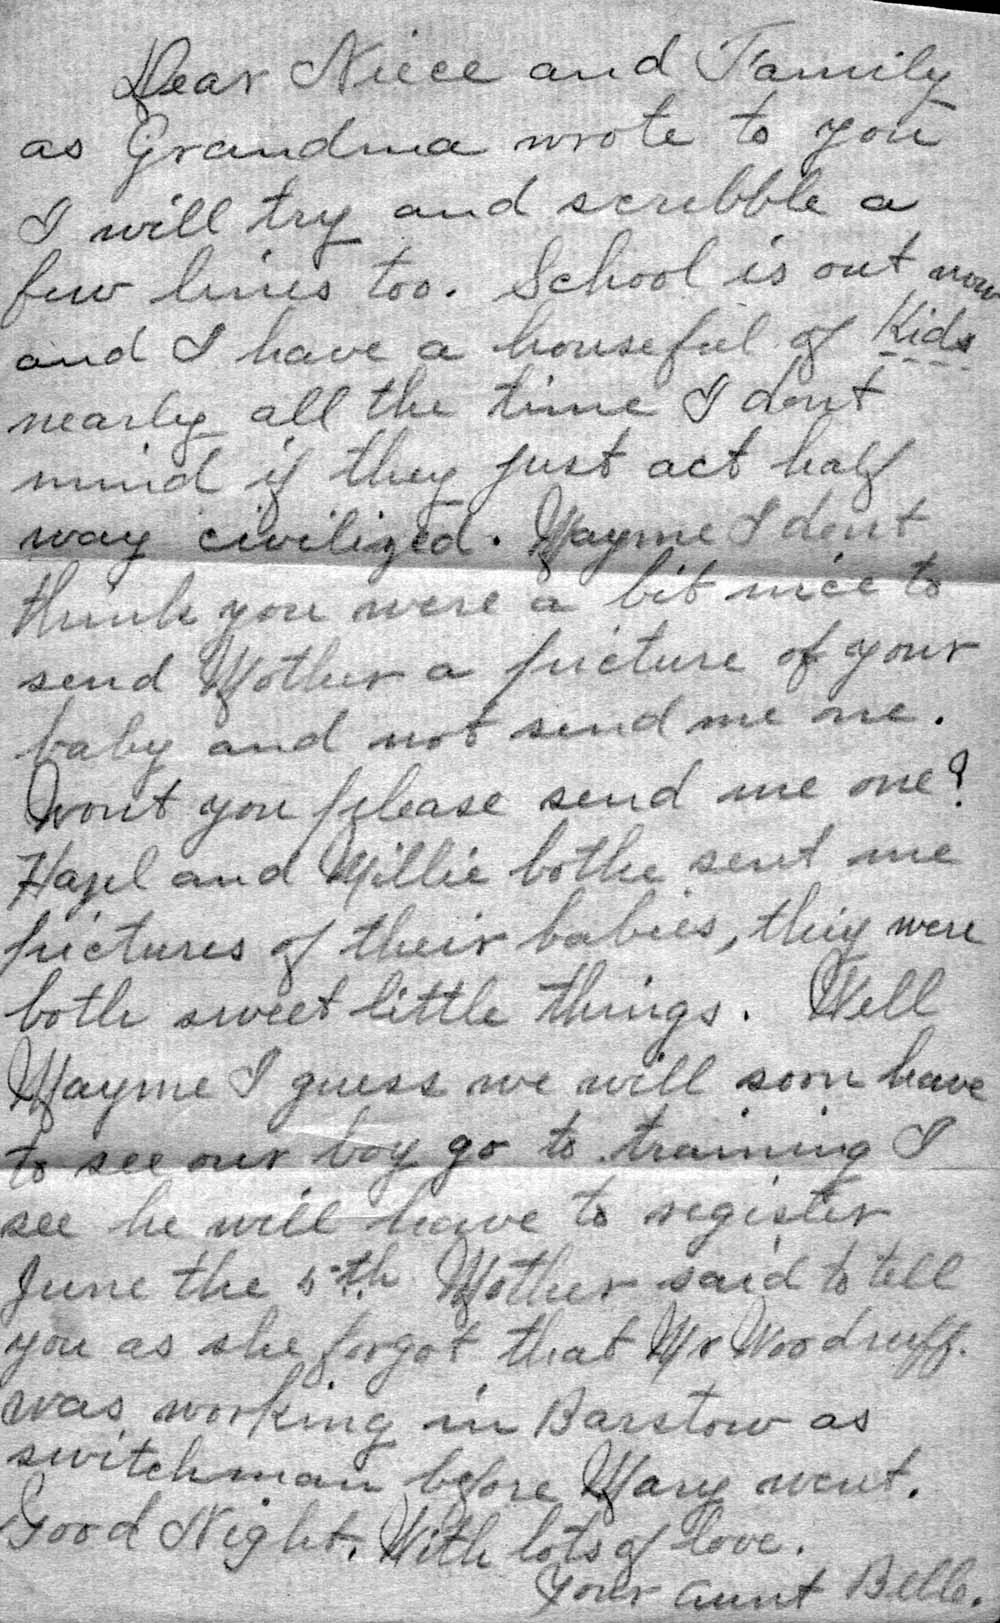 Dear Niece and Family
as Grandma wrote to you
I will try and scribble a
few lines too. School is out now
and I have a houseful of Kids
nearly all the time I dont
mind if they just act half
way civilized. Mayme I dont
think you were a bit nice to
send Mother a picture of your
baby and not send me one.
Wont you please send me one?
Hazel and Millie bothe sent me
pictures of their babies, they were
both sweet little things. Well
Mayme I guess we will soon have
to see our boy go to training I
see he will have to register
June the 5th. Mother said to tell
you as she forgot that Mr Woodruff.
was working in Barstow as
switchman before Mary went.
Good Night. With lots of love.
Your aunt Belle.